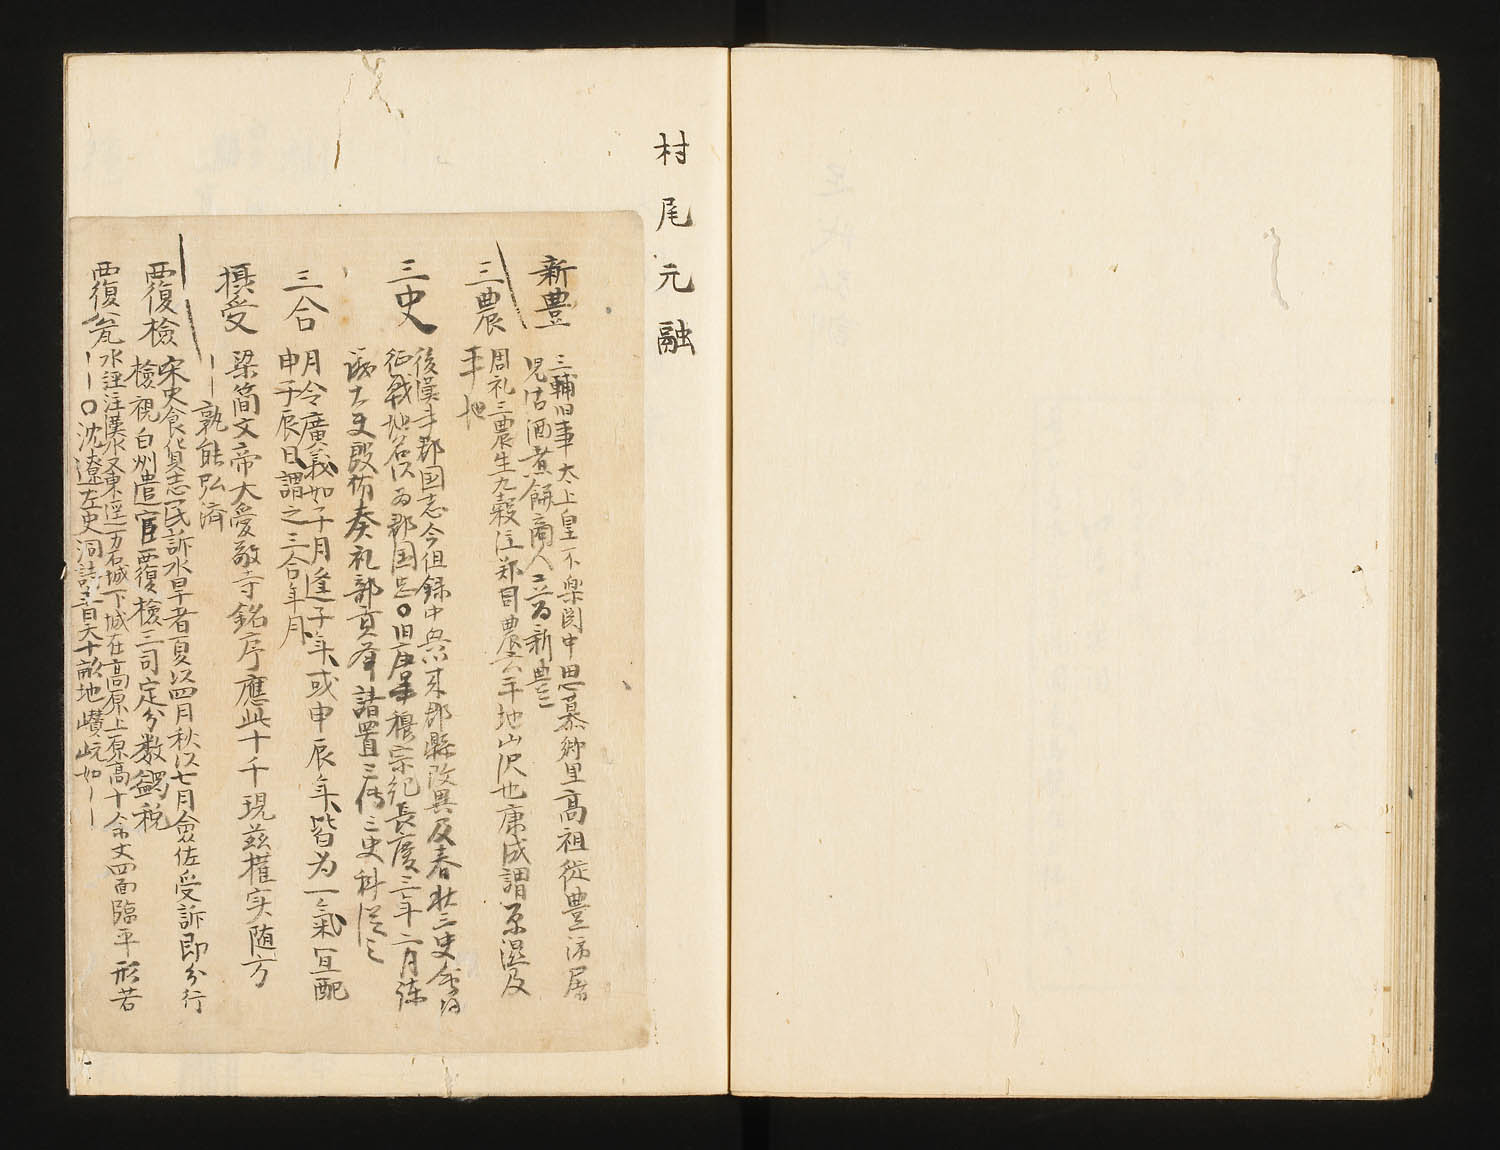 村尾元融
新豊 三輔旧事太上皇不楽関中思慕郷里高祖徙豊沛屠
児沽酒煮餅商人立為新豊
三農 周礼三農生九穀注鄭司農云平地山沢也康成謂原湿及
平地
三史 後漢書郡国志今但録中興以来郡県改異及春秋三史会同
征戦地名以為郡国志〇旧唐書穆宗紀長慶三年二月諌
議大夫殷侑奏礼部貢挙請置三伝三史科従之
三合 月令廣義如子月逢子年或申辰年皆为一氣宜配
申子辰日謂之三合年月
摂受 梁簡文帝大愛敬寺銘序應此十千現茲權实随方
〡〡孰能弘済
覆檢 宋史食貨志民訴水旱者夏以四月秋以七月 佐受訴即分行
檢視白州遣官覆檢三司定分数蠲税
覆瓮 水逕注漢水又東逕万石城下城在高原上原高十余丈四面臨平形若
〡〡〇沈遼左史洞詩 百六十畝地巑岏如〡〡